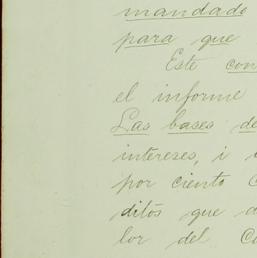 mandado
para que
Este con
el informe
Las bases de
intereses, i
por ciento
ditos que a
lor del Co